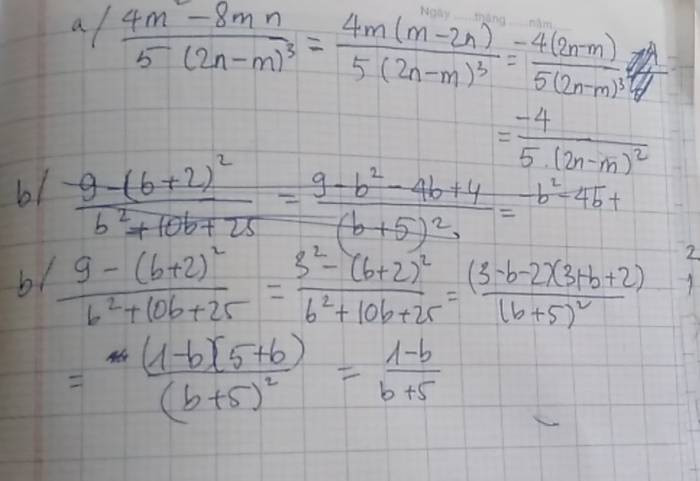 Ngày ......tháng ......năm......
a/ \frac{4m^2 - 8mn}{5 (2n-m)^3} = \frac{4m(m-2n)}{5(2n-m)^3} = \frac{-4(2n-m)}{5(2n-m)^3}
= \frac{-4}{5.(2n-m)^2}
b/ \frac{9-(b+2)^2}{b^2+10b+25} = \frac{9-b^2-4b+4}{(b+5)^2} = -b^2-4b+
b/ \frac{9-(b+2)^2}{b^2+10b+25} = \frac{3^2-(b+2)^2}{b^2+10b+25} = \frac{(3-b-2)(3+b+2)}{(b+5)^2}
= \frac{(1-b)(5+b)}{(b+5)^2} = \frac{1-b}{b+5}